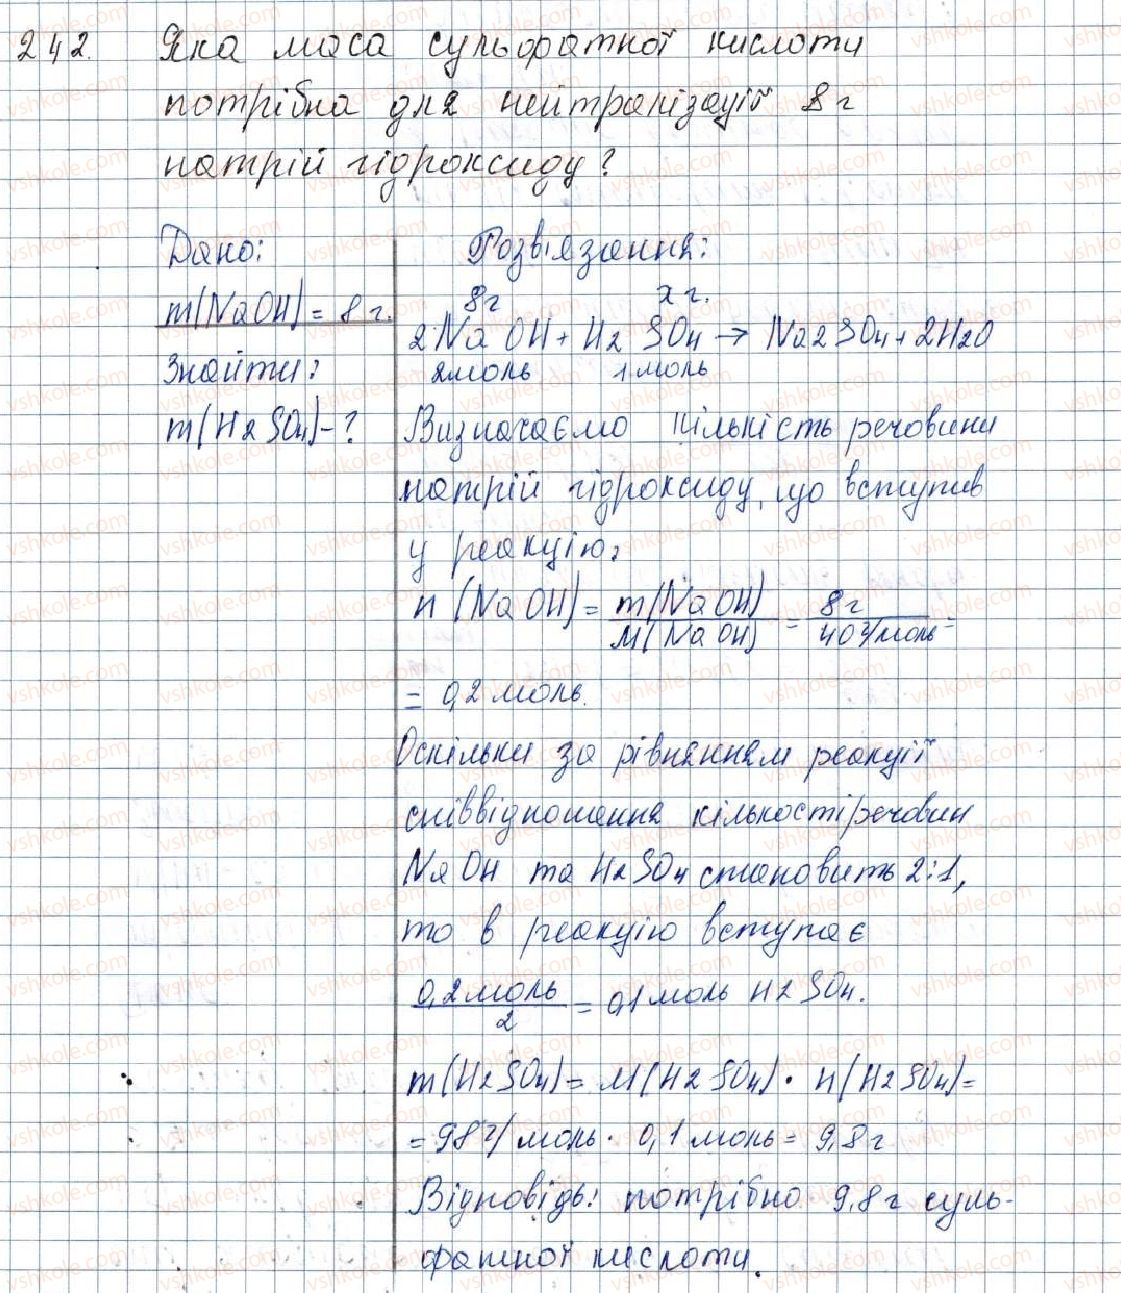 242. Яка маса сульфатної кислоти
потрібна для нейтралізації 8 г
натрій гідроксиду?
Дано:
m(NaOH) = 8 г.
Знайти:
m(H2SO4) - ?
Розв'язання:
8г x г.
2NaOH + H2SO4 → Na2SO4 + 2H2O
2моль 1моль
Визначаємо кількість речовини
натрій гідроксиду, що вступив
у реакцію:
n(NaOH) = m(NaOH) / M(NaOH) = 8г / 40 г/моль =
= 0,2 моль.
Оскільки за рівнянням реакції
співвідношення кількості речовин
NaOH та H2SO4 становить 2:1,
то в реакцію вступає
0,2 моль / 2 = 0,1 моль H2SO4.
m(H2SO4) = M(H2SO4) · n(H2SO4) =
= 98 г/моль · 0,1 моль = 9,8 г
Відповідь: потрібно 9,8 г суль-
фатної кислоти.
vshkole.com